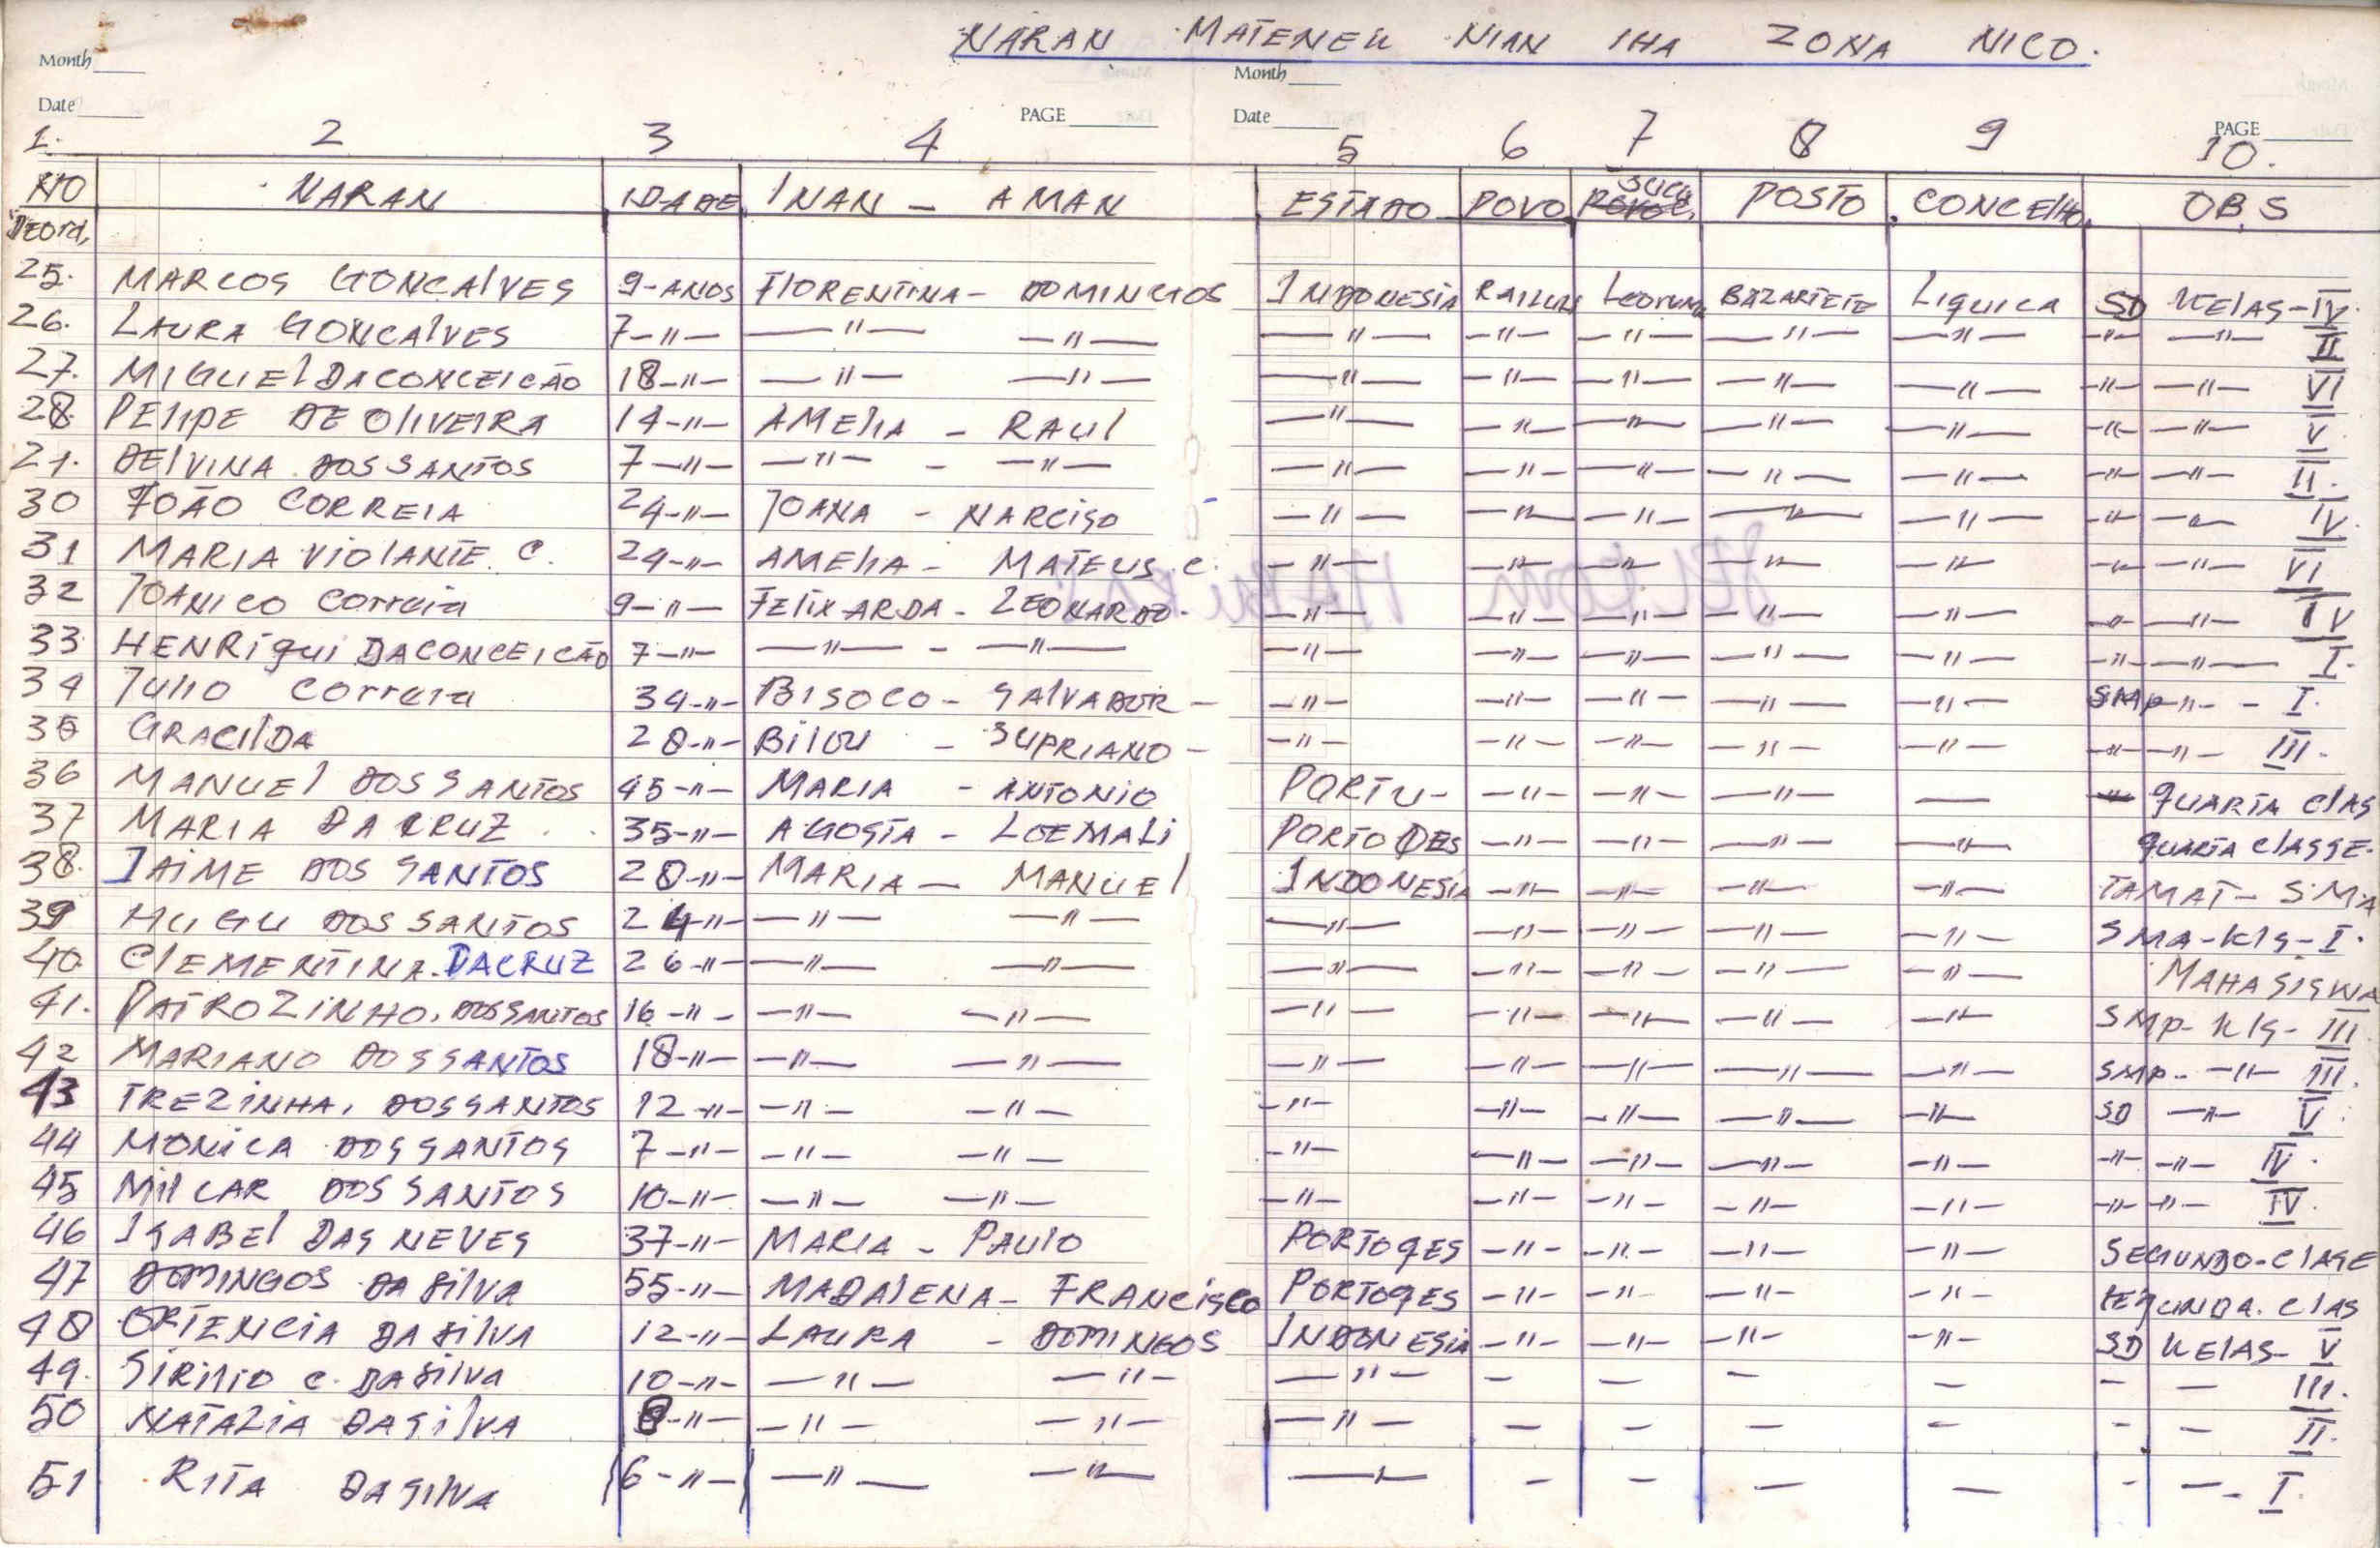 NARAN MATENEK NIAN IHA ZONA NICO.
Month Month
Date PAGE Date PAGE
1. 2 3 4 5 6 7 8 9 10.
NO NARAN IDADE INAN - AMAN ESTADO POVO SUCU POSTO CONCELHO OBS
DEord,
25. MARCOS GONCALVES 9-ANOS FLORENTINA - DOMINGOS INDONESIA BAZARTETE LIQUICA SD KELAS-IV.
26. LAURA GONCALVES 7-"- -"- -"- -"- -"- -"- -"- -"- -"- -"- II
27. MIGUEL DACONCEICÃO 18-"- -"- -"- -"- -"- -"- -"- -"- -"- -"- VI
28. FELIPE DE OLIVEIRA 14-"- AMELIA - RAUL -"- -"- -"- -"- -"- -"- -"- V
21. DELVINA DOS SANTOS 7-"- -"- - -"- -"- -"- -"- -"- -"- -"- -"- II.
30 JOÃO CORREIA 24-"- JOANA - NARCISO -"- -"- -"- -"- -"- -"- -"- IV.
31 MARIA VIOLANTE. C. 24-"- AMELIA - MATEUS. C. -"- -"- -"- -"- -"- -"- -"- VI
32 JOANICO Correia 9-"- FELIXARDA - LEONARDO. -"- -"- -"- -"- -"- -"- -"- IV
33 HENRIqui DACONCEICÃO 7-"- -"- - -"- -"- -"- -"- -"- -"- -"- -"- I.
34 Julio Correia 34-"- BISOCO - SALVADOR - -"- -"- -"- -"- -"- SMP-"- - I.
35 GRACILDA 20-"- BILOU - SUPRIANO - -"- -"- -"- -"- -"- -"- -"- III.
36 MANUEL DOS SANTOS 45-"- MARIA - ANTONIO PORTU- -"- -"- -"- — QUARTA CLAS
37 MARIA DA CRUZ 35-"- AGOSTA - LOEMALI PORTOGES -"- -"- -"- -"- QUARTA CLASSE.
38. JAIME DOS SANTOS 20-"- MARIA - MANUEL INDONESIA -"- -"- -"- -"- TAMAT - SMA
39 HUGU DOS SANTOS 24-"- -"- -"- -"- -"- -"- -"- -"- SMA-KLS-I.
40. CLEMENTINA. DACRUZ 26-"- -"- -"- -"- -"- -"- -"- -"- MAHASISWA
41. PATROZINHO. DOSSANTOS 16-"- -"- -"- -"- -"- -"- -"- -"- SMP-KLS-III
42 MARIANO DOSSANTOS 18-"- -"- -"- -"- -"- -"- -"- -"- SMP. -"- III.
43 TREZINHA. DOSSANTOS 12-"- -"- -"- -"- -"- -"- -"- -"- SD -"- V
44 MONICA DOSSANTOS 7-"- -"- -"- -"- -"- -"- -"- -"- -"- -"- IV.
45 MILCAR DOS SANTOS 10-"- -"- -"- -"- -"- -"- -"- -"- -"- -"- IV.
46 ISABEL DAS NEVES 37-"- MARIA - PAULO PORTOGES -"- -"- -"- -"- SEGUNDO-CLASE
47 DOMINGOS DA SILVA 55-"- MADALENA - FRANCISCO PORTOGES -"- -"- -"- -"- SEGUNDA. CLAS
48 ORTENCIA DA SILVA 12-"- LAURA - DOMINGOS INDONESIA -"- -"- -"- -"- SD KELAS- V
49. SIRILIO C. DASILVA 10-"- -"- -"- -"- - - - - - - III.
50 NATALIA DASILVA 8-"- -"- -"- -"- - - - - - - II.
51 RITA DASILVA 6-"- -"- -"- -"- - - - - - - I.